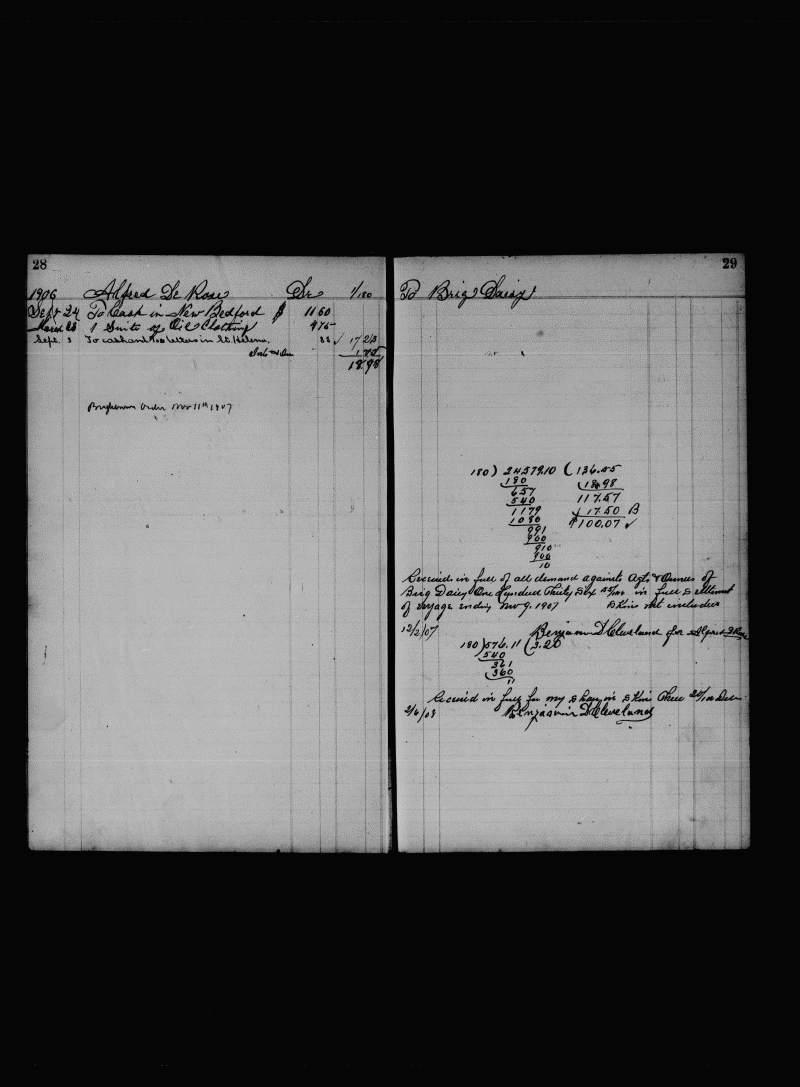 28
1906 Alfred De Rose Dr 1/180
Sept 24 To Cash in New Bedford $ 11 50
March 28 1 Suite of Oil Clothing 4 75
Sept. 3 To cash and letters in St Helena. 88 ✓ 17 23
Int 1 75
18.98
Order Nov 11th 1907
29
To Brig Daisy
180) 24579.10 (136.55
180 18.98
657 117.57
540 17.50 B
1179 $100.07 ✓
1080
991
900
910
900
10
Received in full of all demand against Agts & Owners of
Brig Daisy One Hundred Thirty Six 55/100 in full settlement
of voyage ending Nov 9. 1907 Skins not included
12/2/07 Benjamin D Cleveland for Alfred D Rose
180)576.11 (3.20
540
361
360
11
Received in full for my share in Skins Three 20/100 Dolr
2/6/08 Benjamin D Cleveland